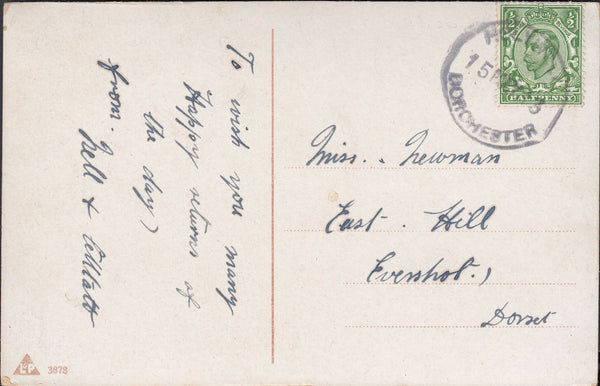 To wish you many
Happy returns of
the day)
from. Nell &
Miss. Newman
East. Hill
Evershot.,
Dorset
HALFPENNY
15
DORCHESTER
3878